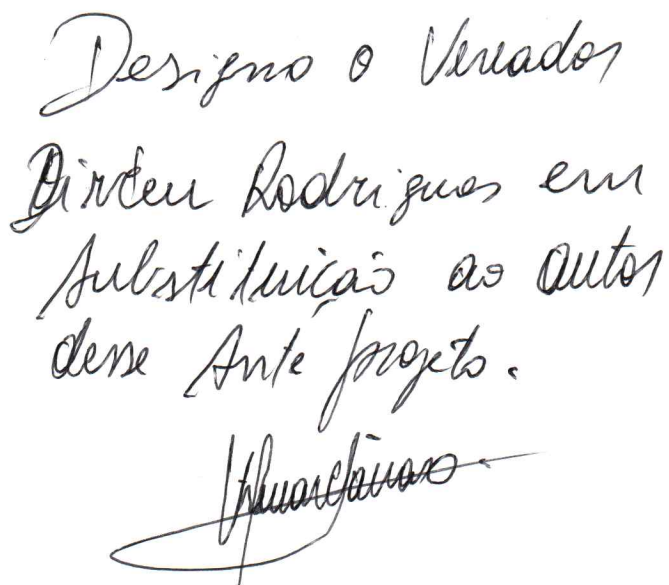 Designo o Vereador
Dirceu Rodrigues em
substituição ao autor
desse Ante projeto.